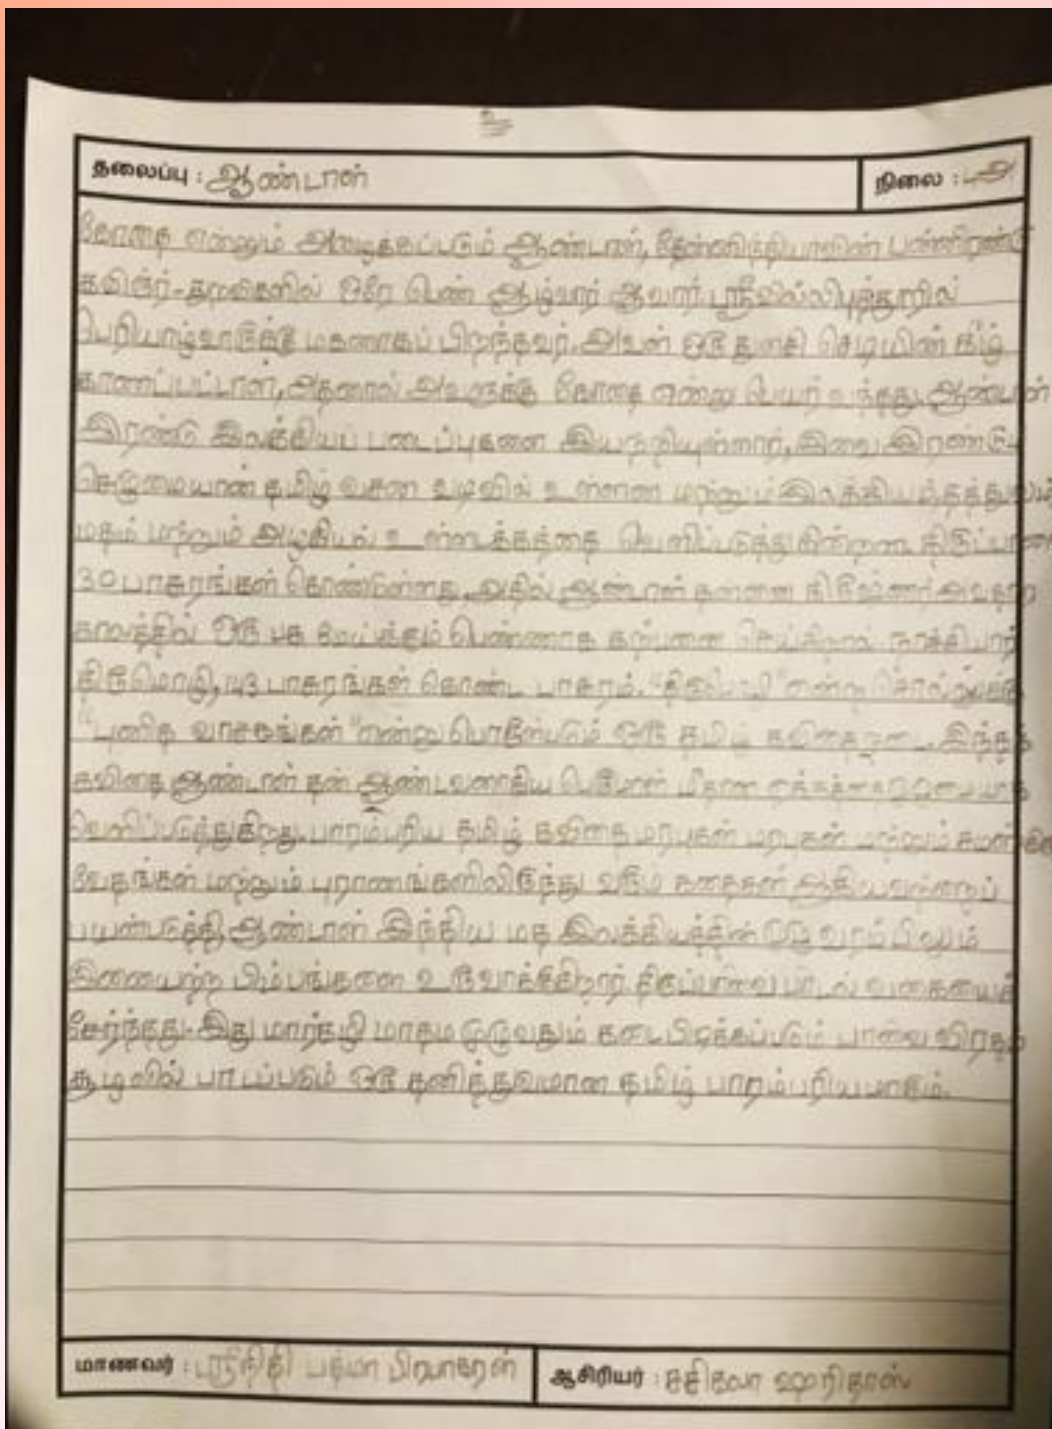 உ
தலைப்பு : ஆண்டாள்
நிலை :
கோதை என்றும் அழைக்கப்படும் ஆண்டாள், தென்னிந்தியாவின் பன்னிரண்டு
கவிஞர்-துறவிகளில் ஒரே பெண் ஆழ்வார் ஆவார். ஸ்ரீவில்லிபுத்தூரில்
பெரியாழ்வாருக்கு மகளாகப் பிறந்தவர். அவள் ஒரு துளசி செடியின் கீழ்
காணப்பட்டாள், அதனால் அவளுக்கு கோதை என்று பெயர் வந்தது. ஆண்டாள்
இரண்டு இலக்கியப் படைப்புகளை இயற்றியுள்ளார், இவை இரண்டும்
செழுமையான தமிழ் வசன வடிவில் உள்ளன மற்றும் இலக்கிய
மதம் மற்றும் அழகியல் உள்ளடக்கத்தை வெளிப்படுத்துகின்றன. திருப்பாவை
30 பாசுரங்கள் கொண்டுள்ளது, அதில் ஆண்டாள் தன்னை அவதார
காலத்தில் ஒரு பசு மேய்க்கும் பெண்ணாக கற்பனை செய்கிறாள். நாச்சியார்
திருமொழி, 143 பாசுரங்கள் கொண்ட பாசுரம். "திருமொழி" என்ற சொல்லுக்கு
"புனித வாசகங்கள்" என்று பொருள்படும் ஒரு தமிழ் கவிதை நடை. இந்தக்
கவிதை ஆண்டாள் தன் ஆண்டவனாகிய பெருமாள் மீதான ஏக்கத்தை
வெளிப்படுத்துகிறது. பாரம்பரிய தமிழ் கவிதை மரபுகள் மரபுகள் மற்றும்
வேதங்கள் மற்றும் புராணங்களிலிருந்து வரும் கதைகள் ஆகியவற்றைப்
பயன்படுத்தி, ஆண்டாள் இந்திய மத இலக்கியத்தின்
இணையற்ற பிம்பங்களை உருவாக்கிறார். திருப்பாவை பாடல் வகையைச்
சேர்ந்தது. இது மார்கழி மாதம் முழுவதும் கடைபிடிக்கப்படும் பாவை விரதம்
சூழலில் பாடப்படும் ஒரு தனித்துவமான தமிழ் பாரம்பரியமாகும்.
மாணவர் : ஸ்ரீநிதி பத்மா பிரபாகரன்
ஆசிரியர் : சசிலோ ஹரிதாஸ்